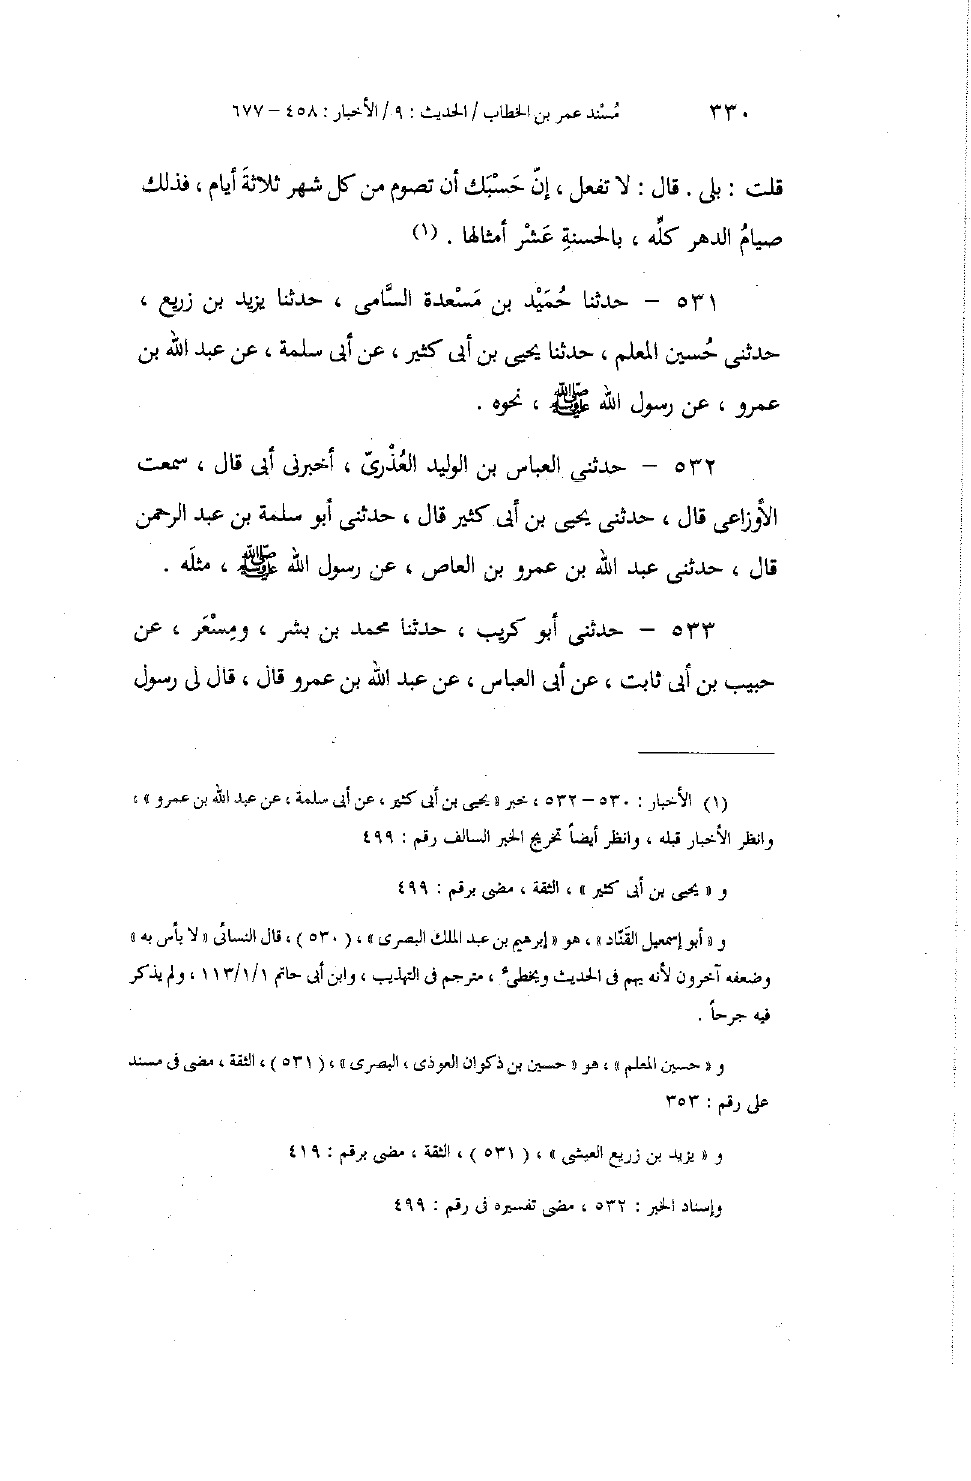 ٣٣٠ مُسْند عمر بن الخطاب / الحديث : ٩ / الأخبار : ٤٥٨ – ٦٧٧
قلت : بلى . قال : لا تفعل ، إنّ حَسْبَك أن تصوم من كل شهر ثلاثةَ أيام ، فذلك
صيامُ الدهر كلِّه ، بالحسنةِ عَشْر أمثالها . (١)
٥٣١ – حدثنا حُمَيْد بن مَسْعدة السَّامى ، حدثنا يزيد بن زريع ،
حدثنى حُسين المعلم ، حدثنا يحيى بن أبى كثير ، عن أبى سلمة ، عن عبد الله بن
عمرو ، عن رسول الله ﷺ ، نحوه .
٥٣٢ – حدثنى العباس بن الوليد العُذْرىّ ، أخبرنى أبى قال ، سمعت
الأوزاعى قال ، حدثنى يحيى بن أبى كثير قال ، حدثنى أبو سلمة بن عبد الرحمن
قال ، حدثنى عبد الله بن عمرو بن العاص ، عن رسول الله ﷺ ، مثلَه .
٥٣٣ – حدثنى أبو كريب ، حدثنا محمد بن بشر ، ومِسْعَر ، عن
حبيب بن أبى ثابت ، عن أبى العباس ، عن عبد الله بن عمرو قال ، قال لى رسول
(١) الأخبار : ٥٣٠ – ٥٣٢ ، خبر « يحيى بن أبى كثير ، عن أبى سلمة ، عن عبد الله بن عمرو » ،
وانظر الأخبار قبله ، وانظر أيضاً تخريج الخبر السالف رقم : ٤٩٩
و « يحيى بن أبى كثير » ، الثقة ، مضى برقم : ٤٩٩
و « أبو إسمعيل القَنَّاد » ، هو « إبرهيم بن عبد الملك البصرى » ، ( ٥٣٠ ) ، قال النسائى « لا بأس به »
وضعفه آخرون لأنه يهم فى الحديث ويخطىء ، مترجم فى التهذيب ، وابن أبى حاتم ١/١/١١٣ ، ولم يذكر
فيه جرحاً .
و « حسين المعلم » ، هو « حسين بن ذكوان العوذى ، البصرى » ، ( ٥٣١ ) ، الثقة ، مضى فى مسند
على رقم : ٣٥٣
و « يزيد بن زريع العيشى » ، ( ٥٣١ ) ، الثقة ، مضى برقم : ٤١٩
وإسناد الخبر : ٥٣٢ ، مضى تفسيره فى رقم : ٤٩٩